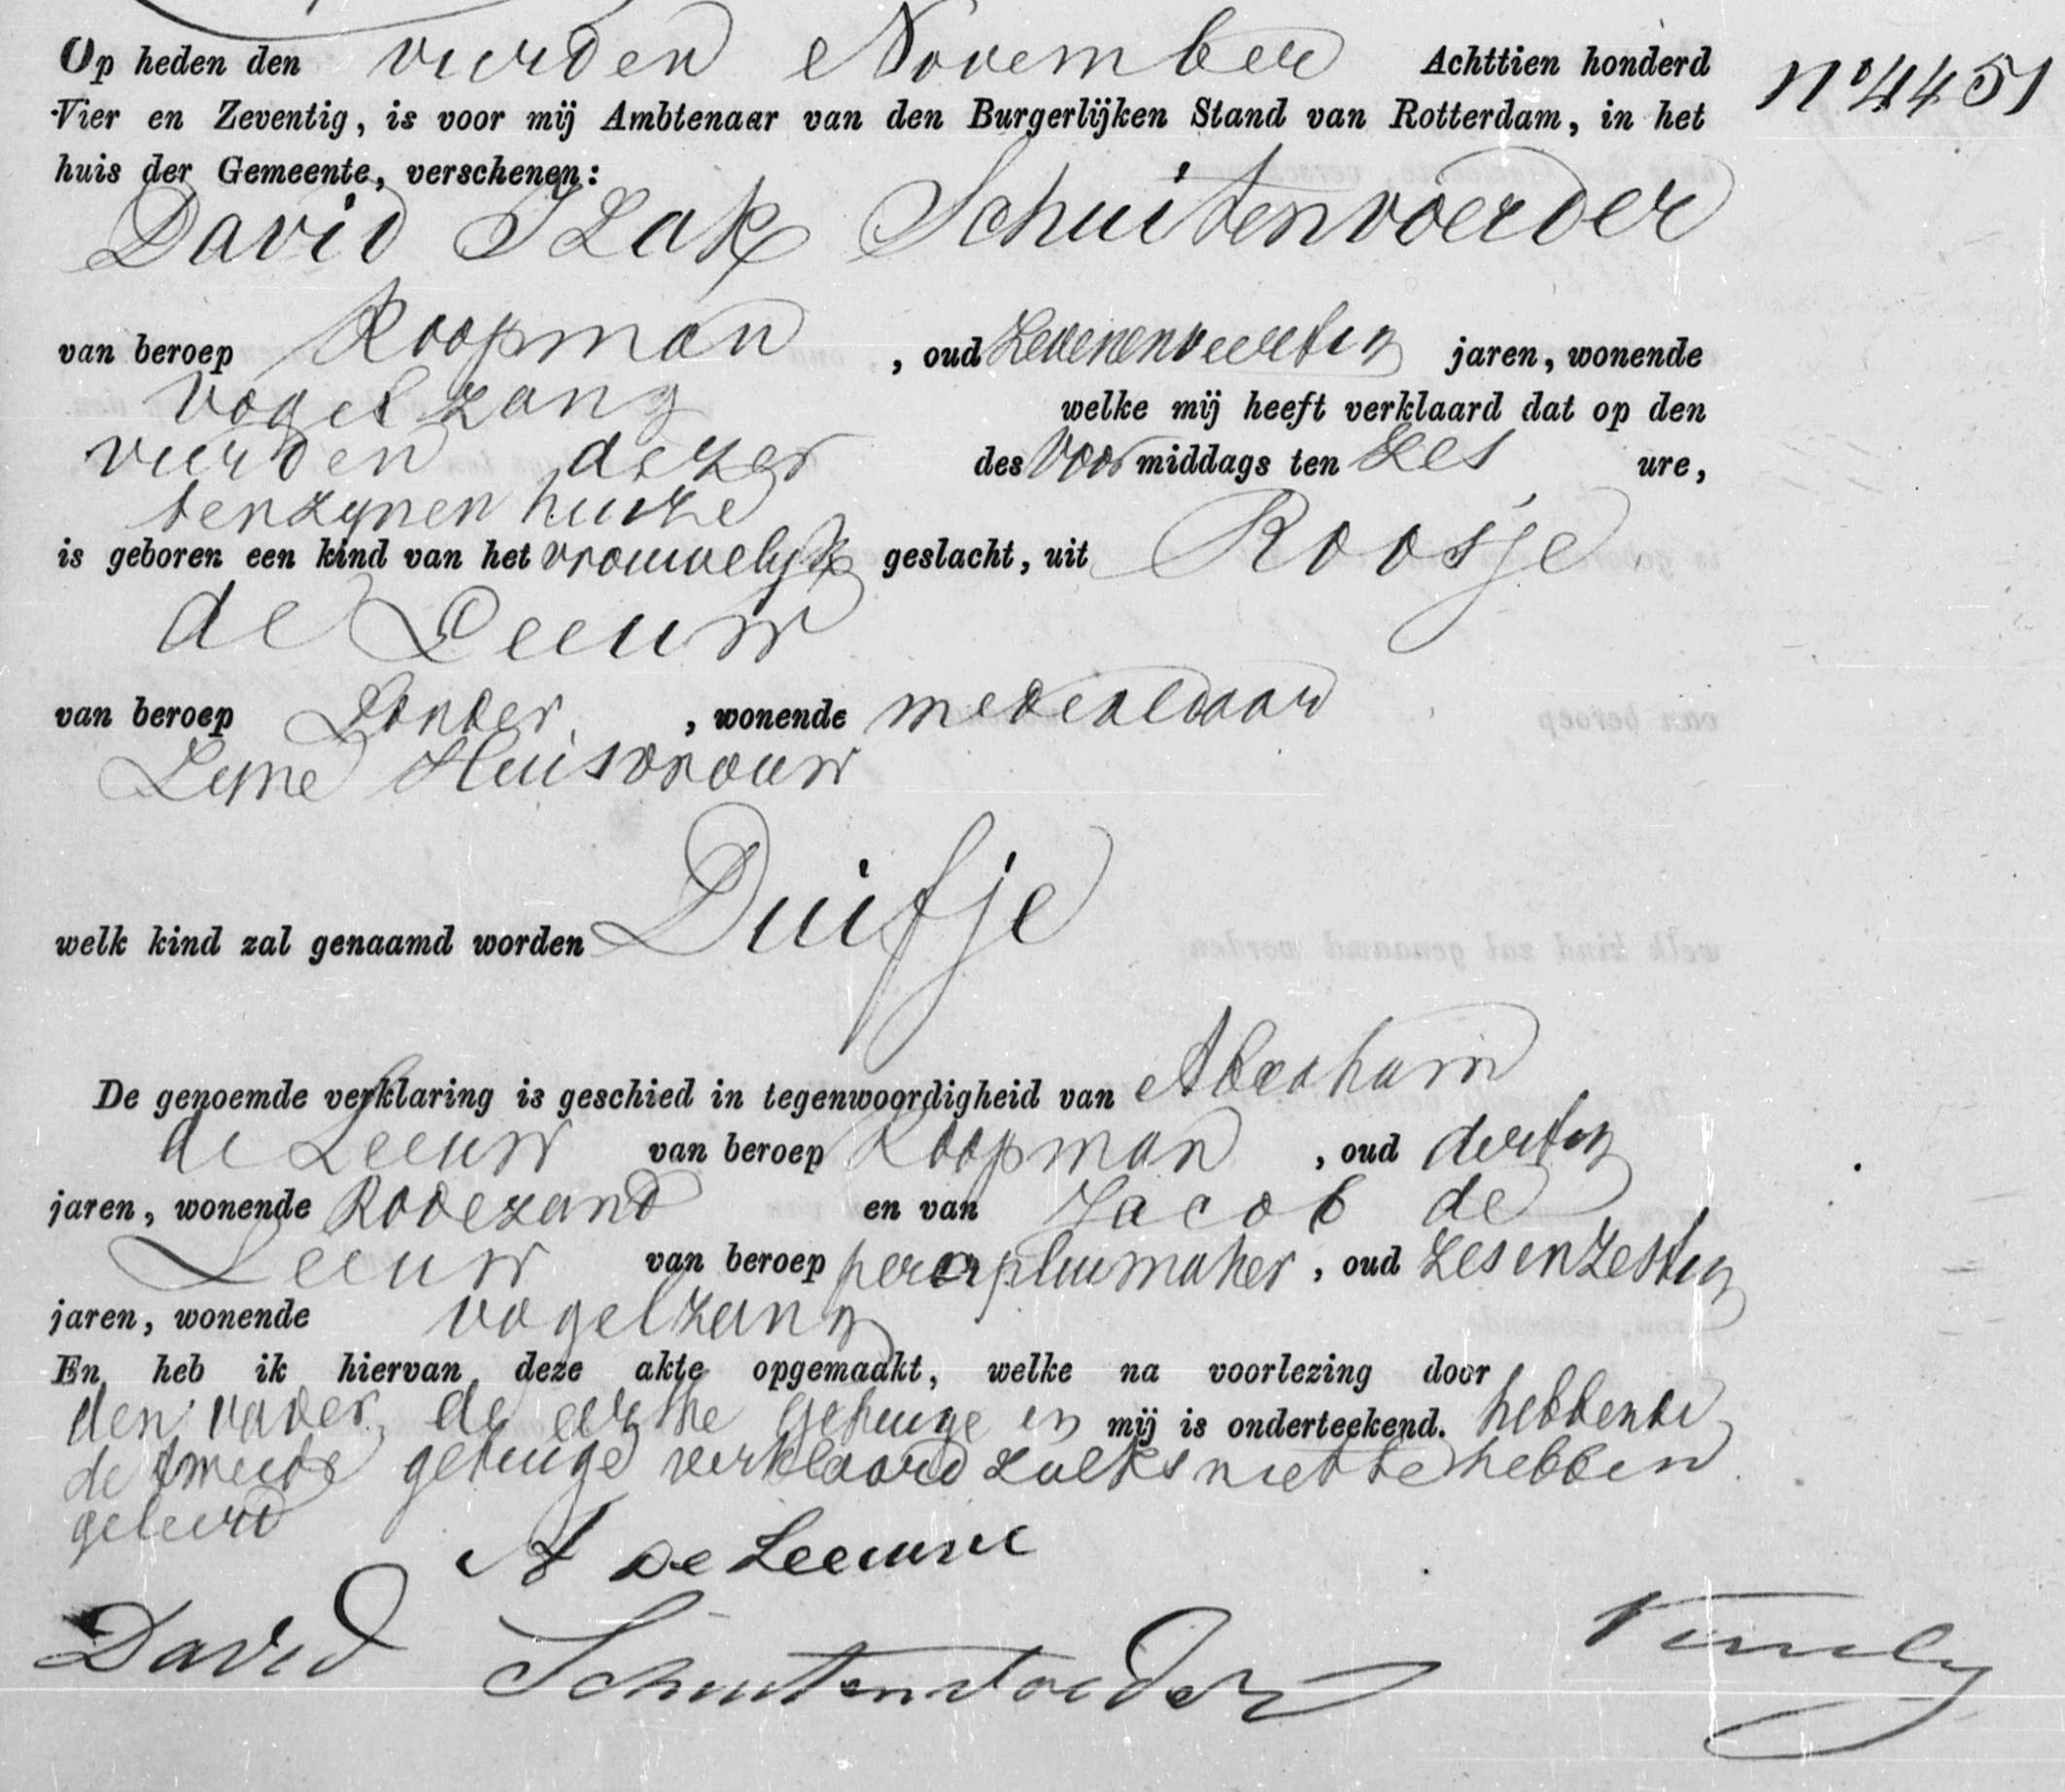 Op heden den vierden November Achttien honderd
No 4451
Vier en Zeventig, is voor mij Ambtenaar van den Burgerlijken Stand van Rotterdam, in het
huis der Gemeente, verschenen:
David Izak Schuitenvoerder
van beroep Koopman, oud Zevenenveertig jaren, wonende
Vogelzang welke mij heeft verklaard dat op den
vierden dezer des Voormiddags ten Zes ure,
ten zynen huize
is geboren een kind van het vrouwelijk geslacht, uit Roosje
de Leeuw
van beroep Zonder, wonende mede aldaar
Zyne Huisvrouw
welk kind zal genaamd worden Duifje
De genoemde verklaring is geschied in tegenwoordigheid van Abraham
de Leeuw van beroep Koopman, oud dertig
jaren, wonende Rodezand en van Jacob de
Leeuw van beroep parapluumaker, oud Zesenzestig
jaren, wonende vogelzang
En heb ik hiervan deze akte opgemaakt, welke na voorlezing door
den vader, de eerste getuige en mij is onderteekend. hebbende
de tweede getuige verklaard zulks niet te hebben
geleerd
A de Leeuw
David Schuitenvoerder